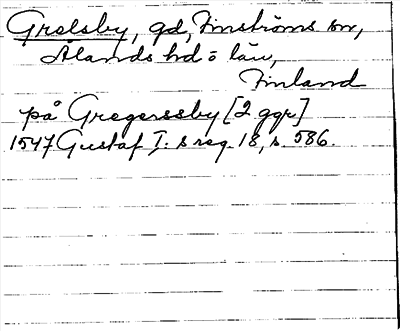 Grelsby, gd, Finströms sn,
Ålands hd o län,
Finland
på Gregerssby [2 ggr]
1547 Gustaf I:s reg. 18, s. 586.